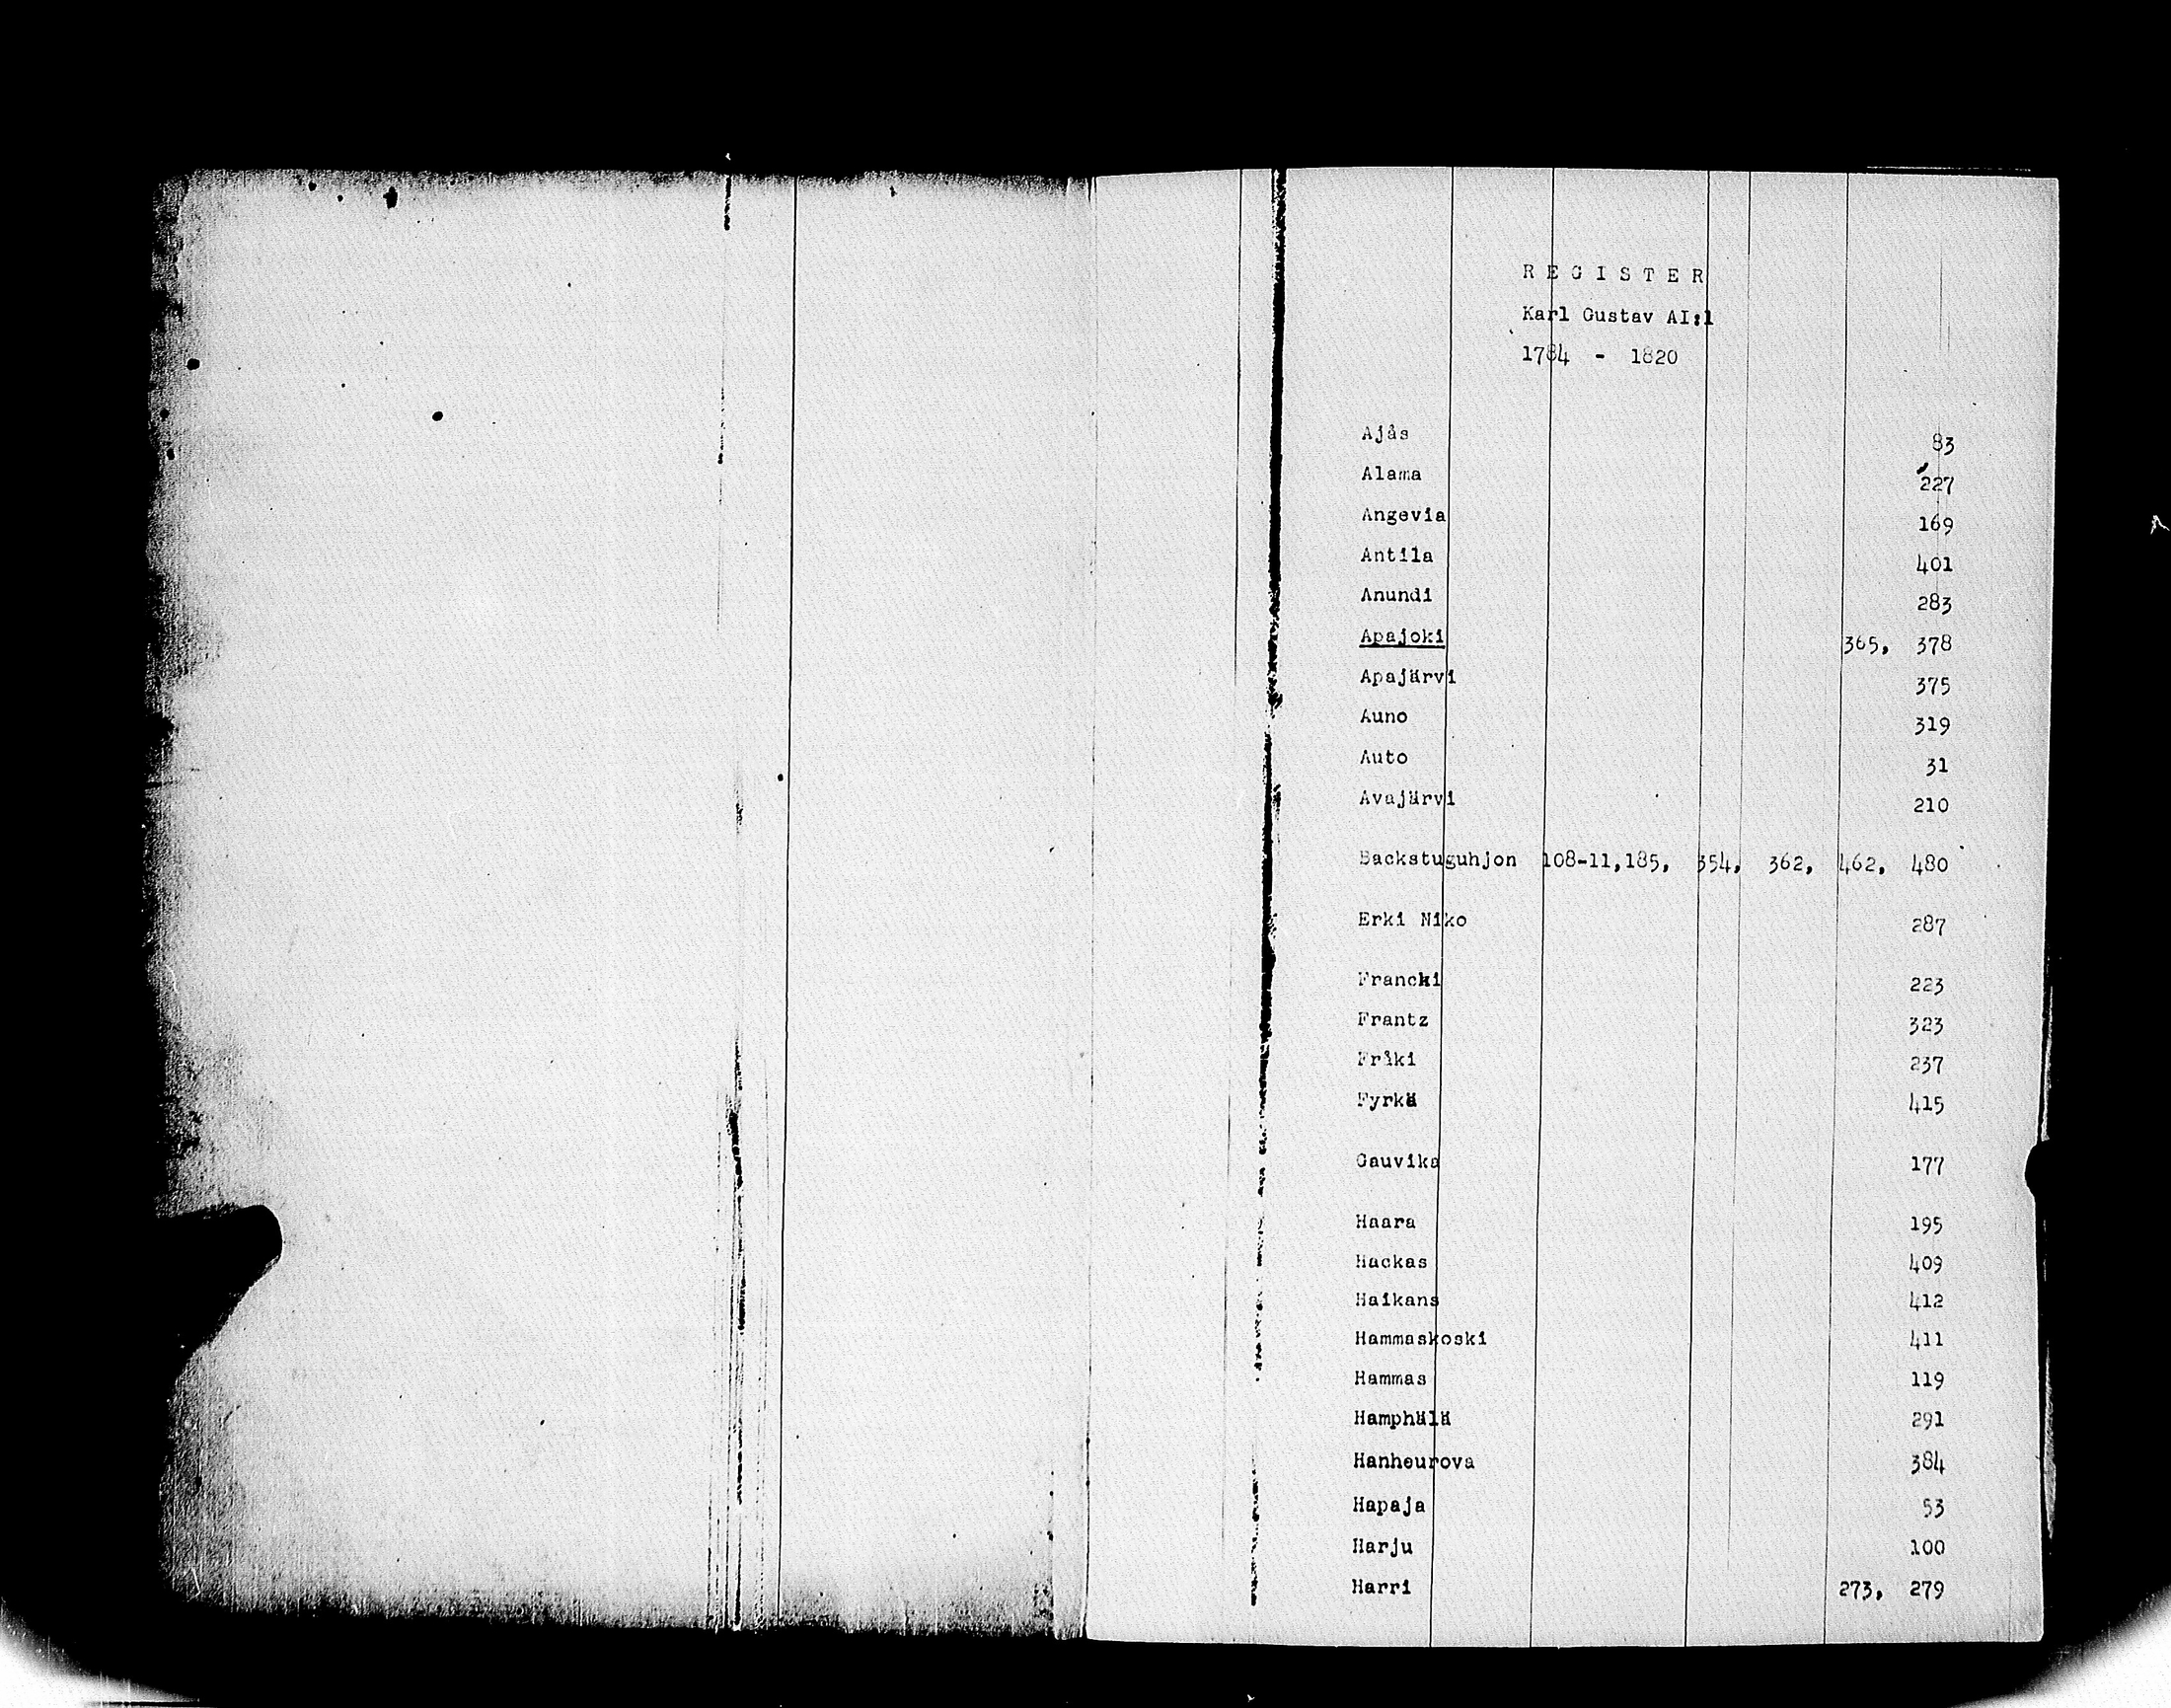 REGISTER
Karl Gustav AI:1
1784 - 1820
Ajås 83
Alama 227
Angevia 169
Antila 401
Anundi 283
Apajoki 365, 378
Apajärvi 375
Auno 319
Auto 31
Avajärvi 210
Backstuguhjon 108-11,185, 354, 362, 462, 480
Erki Niko 287
Francki 223
Frantz 323
Fråki 237
Fyrkä 415
Gauvika 177
Haara 195
Hackas 409
Haikans 412
Hammaskoski 411
Hammas 119
Hamphälä 291
Hanheurova 384
Hapaja 53
Harju 100
Harri 273, 279